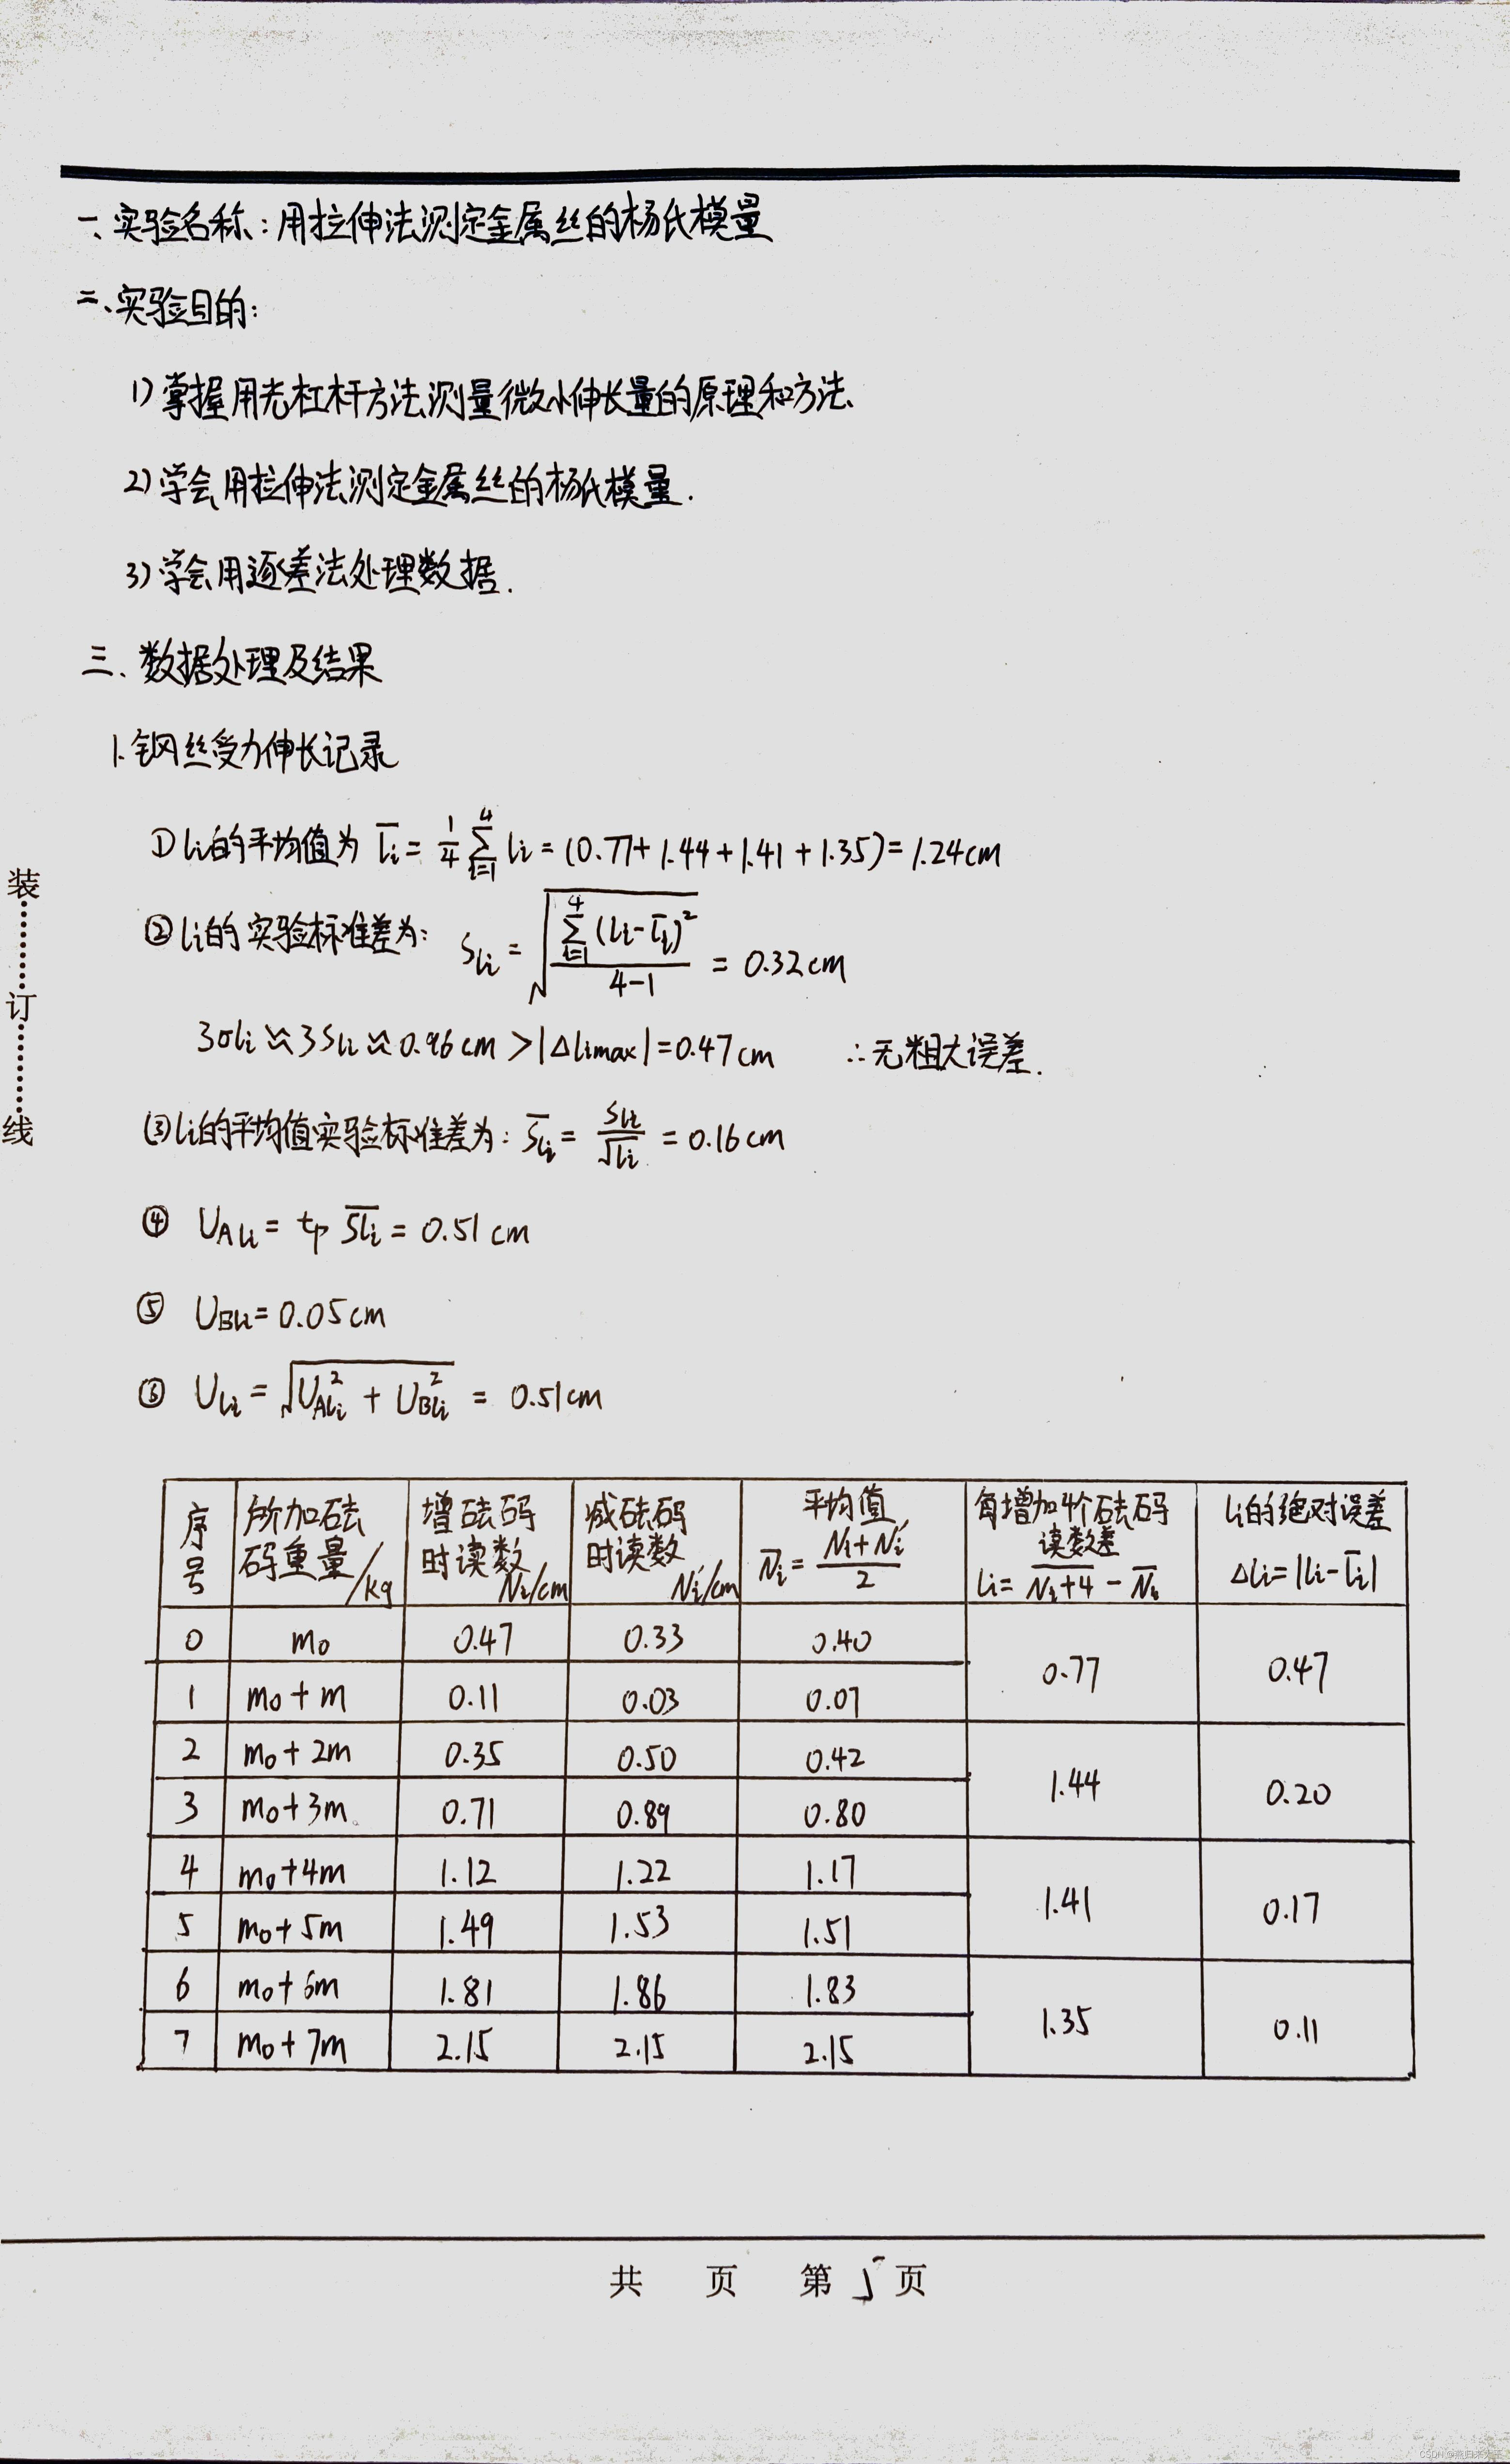 一、实验名称:用拉伸法测定金属丝的杨氏模量
二、实验目的:
1) 掌握用光杠杆方法测量微小伸长量的原理和方法.
2) 学会用拉伸法测定金属丝的杨氏模量.
3) 学会用逐差法处理数据.
三、数据处理及结果
1.钢丝受力伸长记录
① li的平均值为 l̅i = 1/4 ∑(i=1→4) li = (0.77+1.44+1.41+1.35) = 1.24cm
② li的实验标准差为: Sli = √(∑(i=1→4)(li-l̅i)²/(4-1)) = 0.32cm
3σli ≈ 3Sli ≈ 0.96cm > |Δlimax| = 0.47cm ∴无粗大误差.
③ li的平均值实验标准差为: S̅li = Sli/√li = 0.16cm
④ UAli = tp S̅li = 0.51cm
⑤ UBli = 0.05cm
⑥ Uli = √(UAli² + UBli²) = 0.51cm
序号 所加砝码重量/kg 增砝码时读数Ni/cm 减砝码时读数Ni'/cm 平均值 N̅i = (Ni+Ni')/2 每增加4个砝码读数差 li = N̅i+4 - N̅i li的绝对误差 Δli = |li-l̅i|
0 m0 0.47 0.33 0.40 0.77 0.47
1 m0+m 0.11 0.03 0.07
2 m0+2m 0.35 0.50 0.42 1.44 0.20
3 m0+3m 0.71 0.89 0.80
4 m0+4m 1.12 1.22 1.17 1.41 0.17
5 m0+5m 1.49 1.53 1.51
6 m0+6m 1.81 1.86 1.83 1.35 0.11
7 m0+7m 2.15 2.15 2.15
装订线
共 页 第 5 页